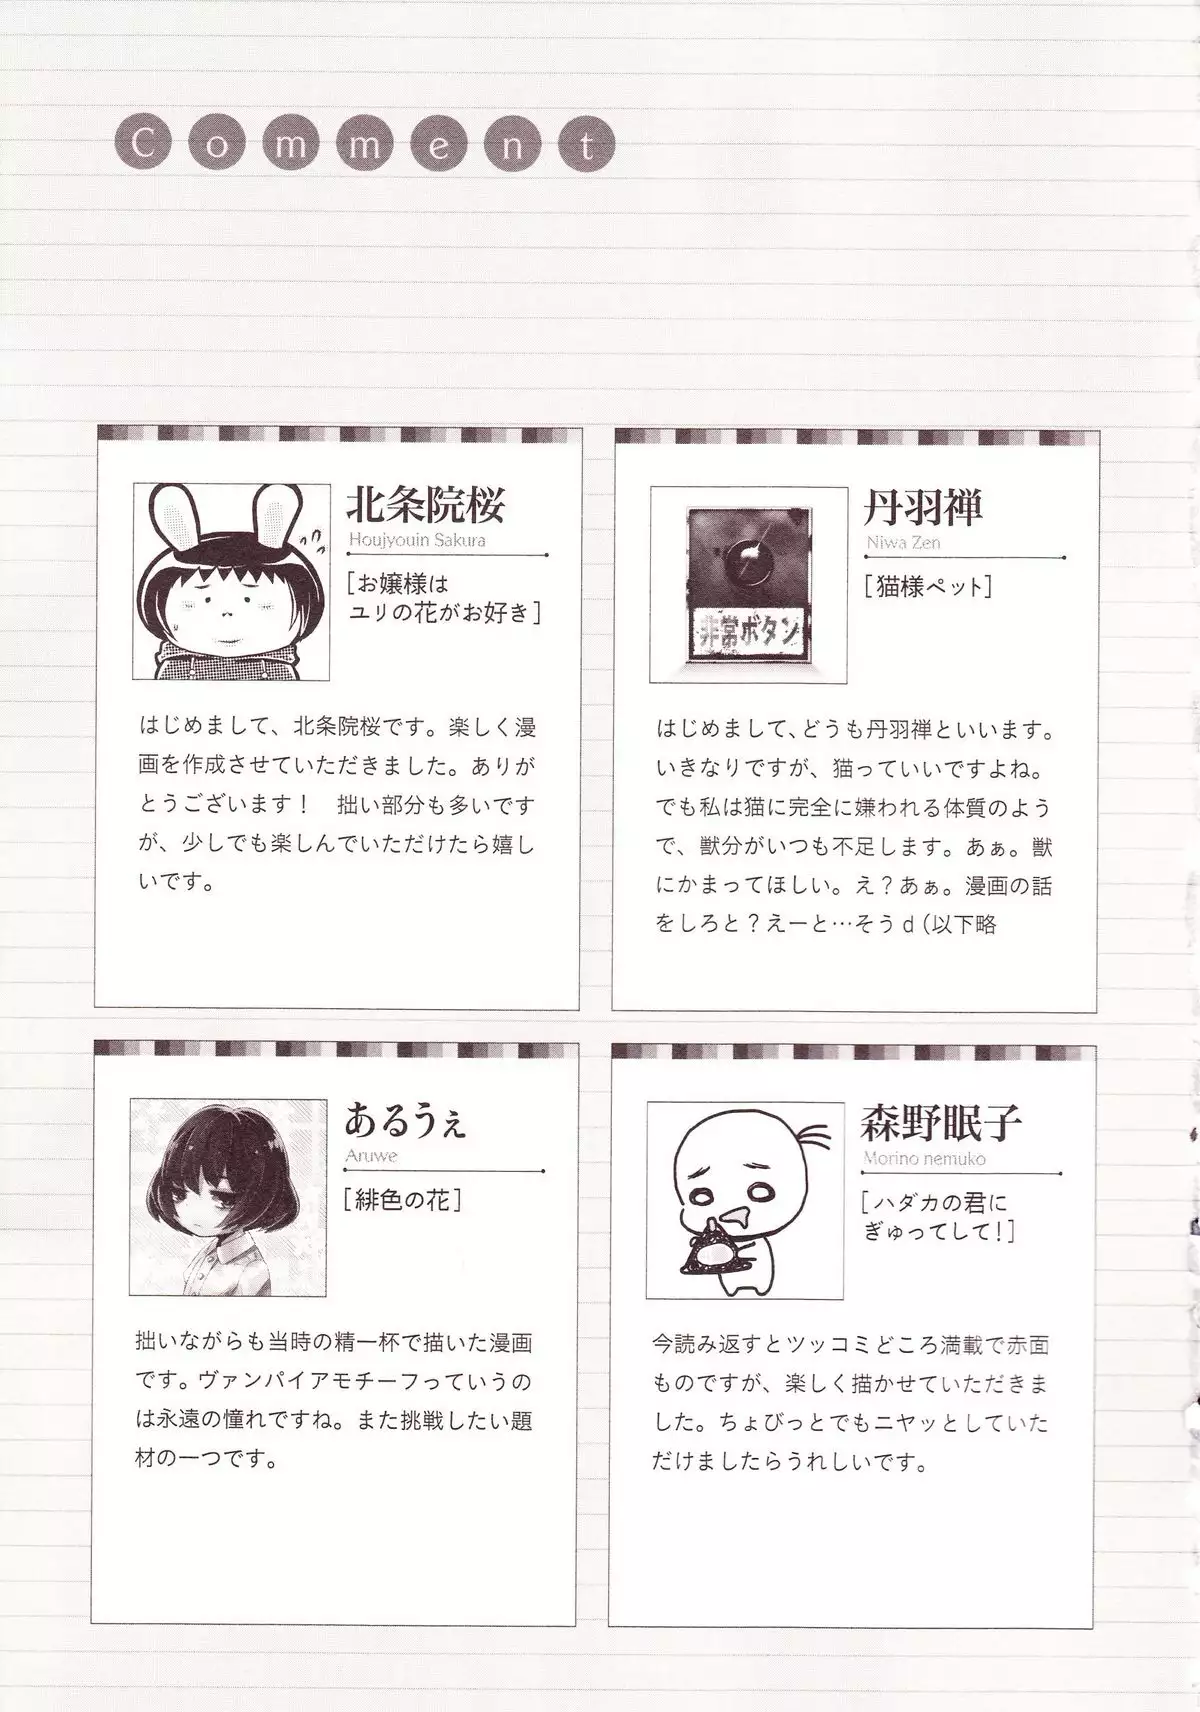 Comment
北条院桜
Houjyouin Sakura
[お嬢様は
ユリの花がお好き]
はじめまして、北条院桜です。楽しく漫
画を作成させていただきました。ありが
とうございます！　拙い部分も多いです
が、少しでも楽しんでいただけたら嬉し
いです。
丹羽禅
Niwa Zen
[猫様ペット]
非常ボタン
はじめまして、どうも丹羽禅といいます。
いきなりですが、猫っていいですよね。
でも私は猫に完全に嫌われる体質のよう
で、獣分がいつも不足します。あぁ。獣
にかまってほしい。え？あぁ。漫画の話
をしろと？えーと…そうｄ（以下略
あるうぇ
Aruwe
[緋色の花]
拙いながらも当時の精一杯で描いた漫画
です。ヴァンパイアモチーフっていうの
は永遠の憧れですね。また挑戦したい題
材の一つです。
森野眠子
Morino nemuko
[ハダカの君に
ぎゅってして！]
今読み返すとツッコミどころ満載で赤面
ものですが、楽しく描かせていただきま
した。ちょびっとでもニヤッとしていた
だけましたらうれしいです。